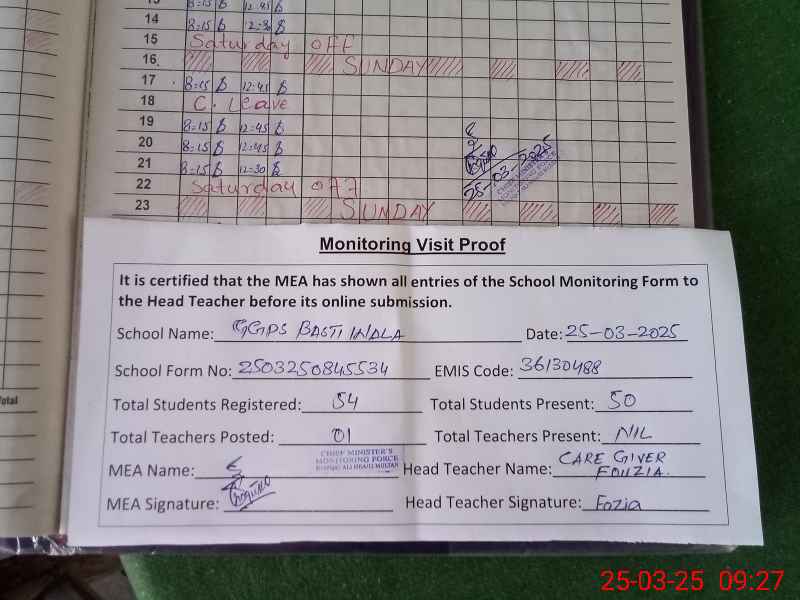 13 8=15 12=45
14 8=15 12=30
15 Saturday off
16 SUNDAY
17 8=15 12=45
18 C. Leave
19 8=15 12=45
20 8=15 12=45
21 8=15 12=30
25-03-2025
CHIEF MINISTER'S
22 Saturday off
23 SUNDAY
Monitoring Visit Proof
It is certified that the MEA has shown all entries of the School Monitoring Form to
the Head Teacher before its online submission.
School Name: GGPS BASTI INDLA Date: 25-03-2025
School Form No: 2503250845534 EMIS Code: 36130488
Total Students Registered: 54 Total Students Present: 50
Total Teachers Posted: 01 Total Teachers Present: NIL
CHIEF MINISTER'S
MONITORING FORCE
MEA Name: Head Teacher Name: CARE GIVER
FOUZIA.
MEA Signature: Head Teacher Signature: Fozia
otal
25-03-25 09:27